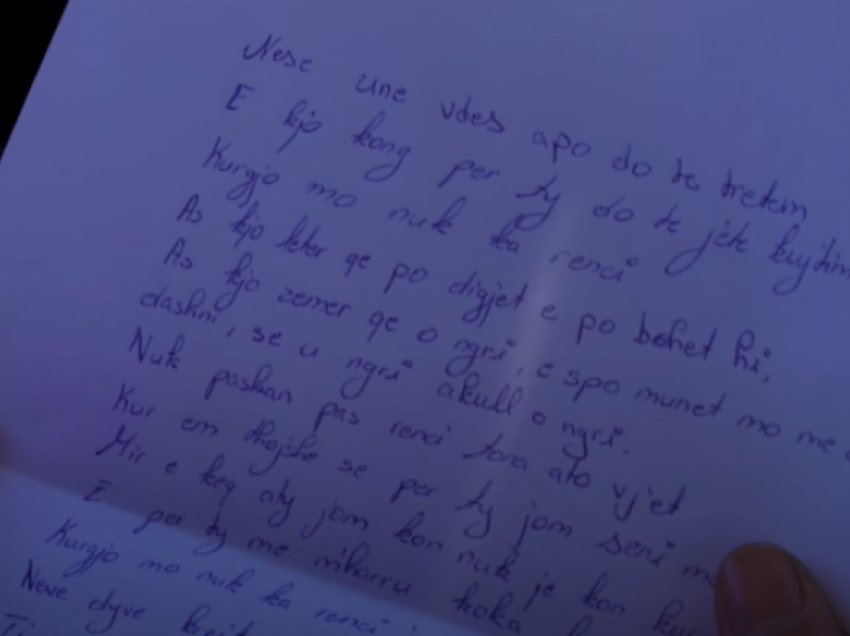 Nese une vdes apo do te tretem
E kjo kong per ty do te jete kujtim
Kurgjo mo nuk ka renci
As kjo leter qe po digjet e po behet hi,
As kjo zemer qe o ngri, e spo munet mo me
dashni, se u ngri akull o ngri.
Nuk paskan pas renci tona ato vjet
Kur em thojshe se per ty jom seni
Mir e keq aty jom kon nuk je kon
E per ty me m'harru koka
Kurgjo mo nuk ka renci
Neve dyve